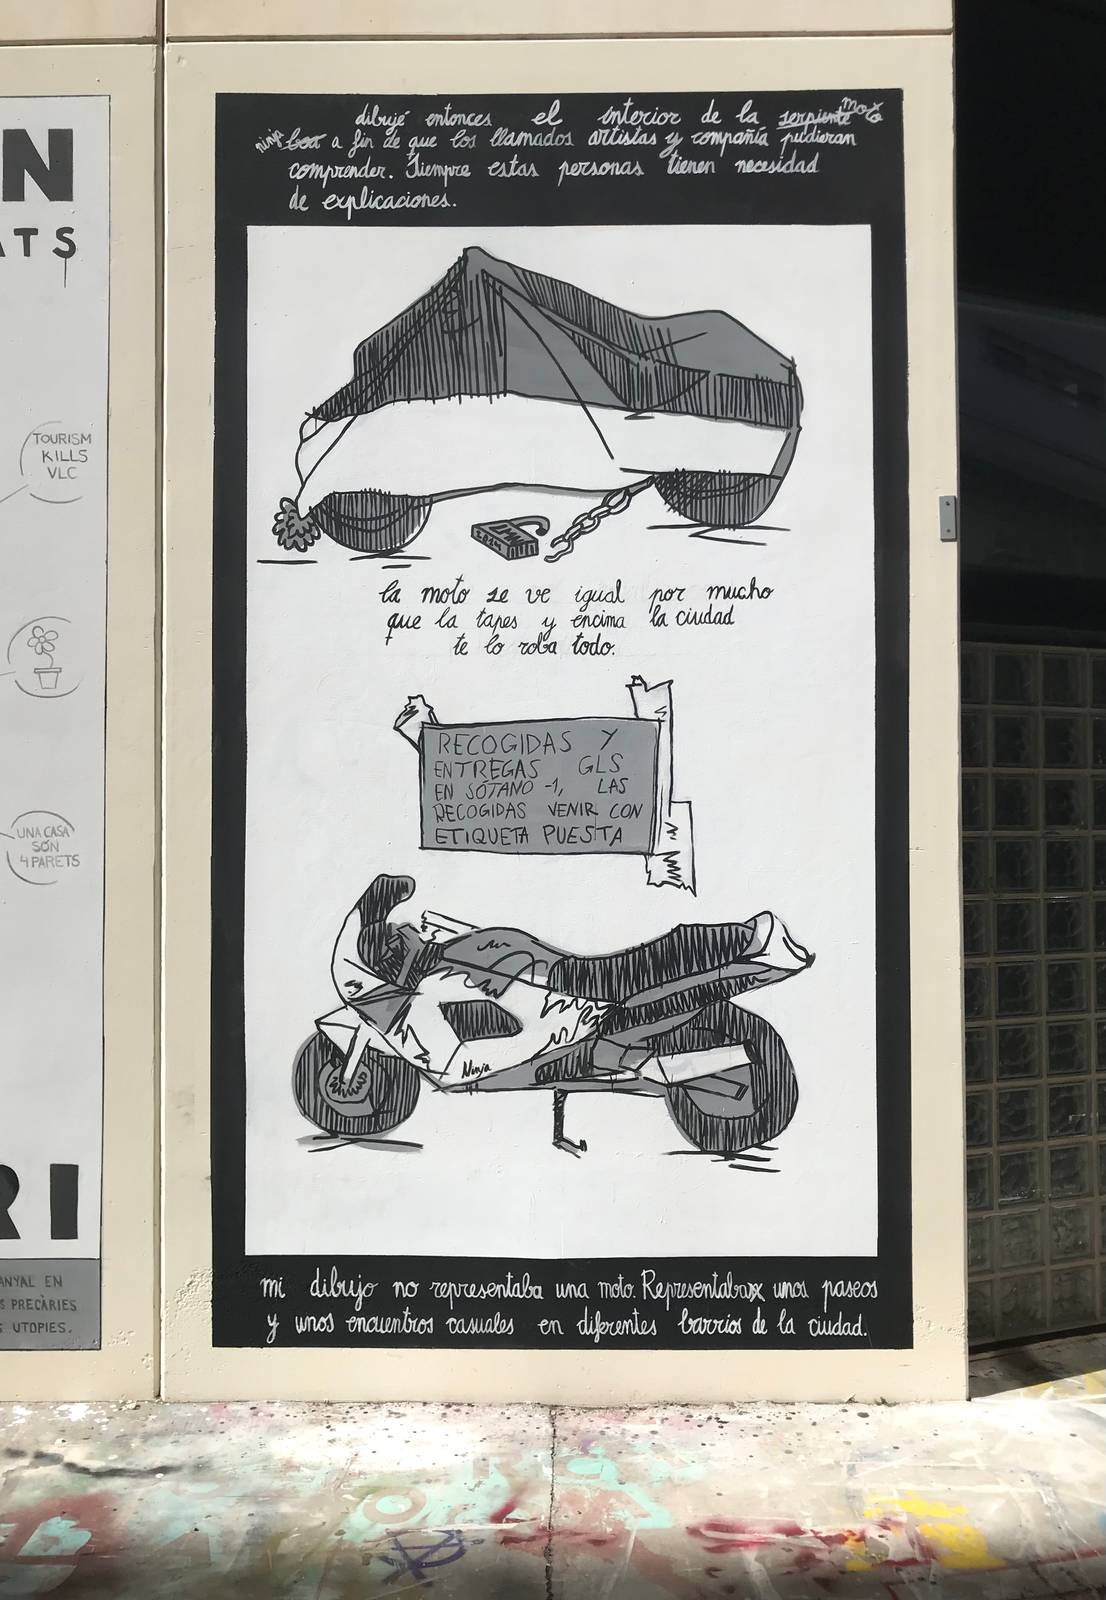 N
ATS
TOURISM
KILLS
VLC
UNA CASA
SÓN
4 PARETS
RI
ANYAL EN
S PRECÀRIES
S UTOPIES.
dibujé entonces el interior de la serpiente moto
ninja boa a fin de que los llamados artistas y compañía pudieran
comprender. Siempre estas personas tienen necesidad
de explicaciones.
la moto se ve igual por mucho
que la tapes y encima la ciudad
te lo roba todo.
RECOGIDAS Y
ENTREGAS GLS
EN SÓTANO -1, LAS
RECOGIDAS VENIR CON
ETIQUETA PUESTA
Ninja
mi dibujo no representaba una moto. Representaba unos paseos
y unos encuentros casuales en diferentes barrios de la ciudad.